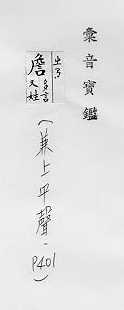 彙音寶鑑
ㄓㄢ
詹 多言
又姓
(兼上平聲.
P401)